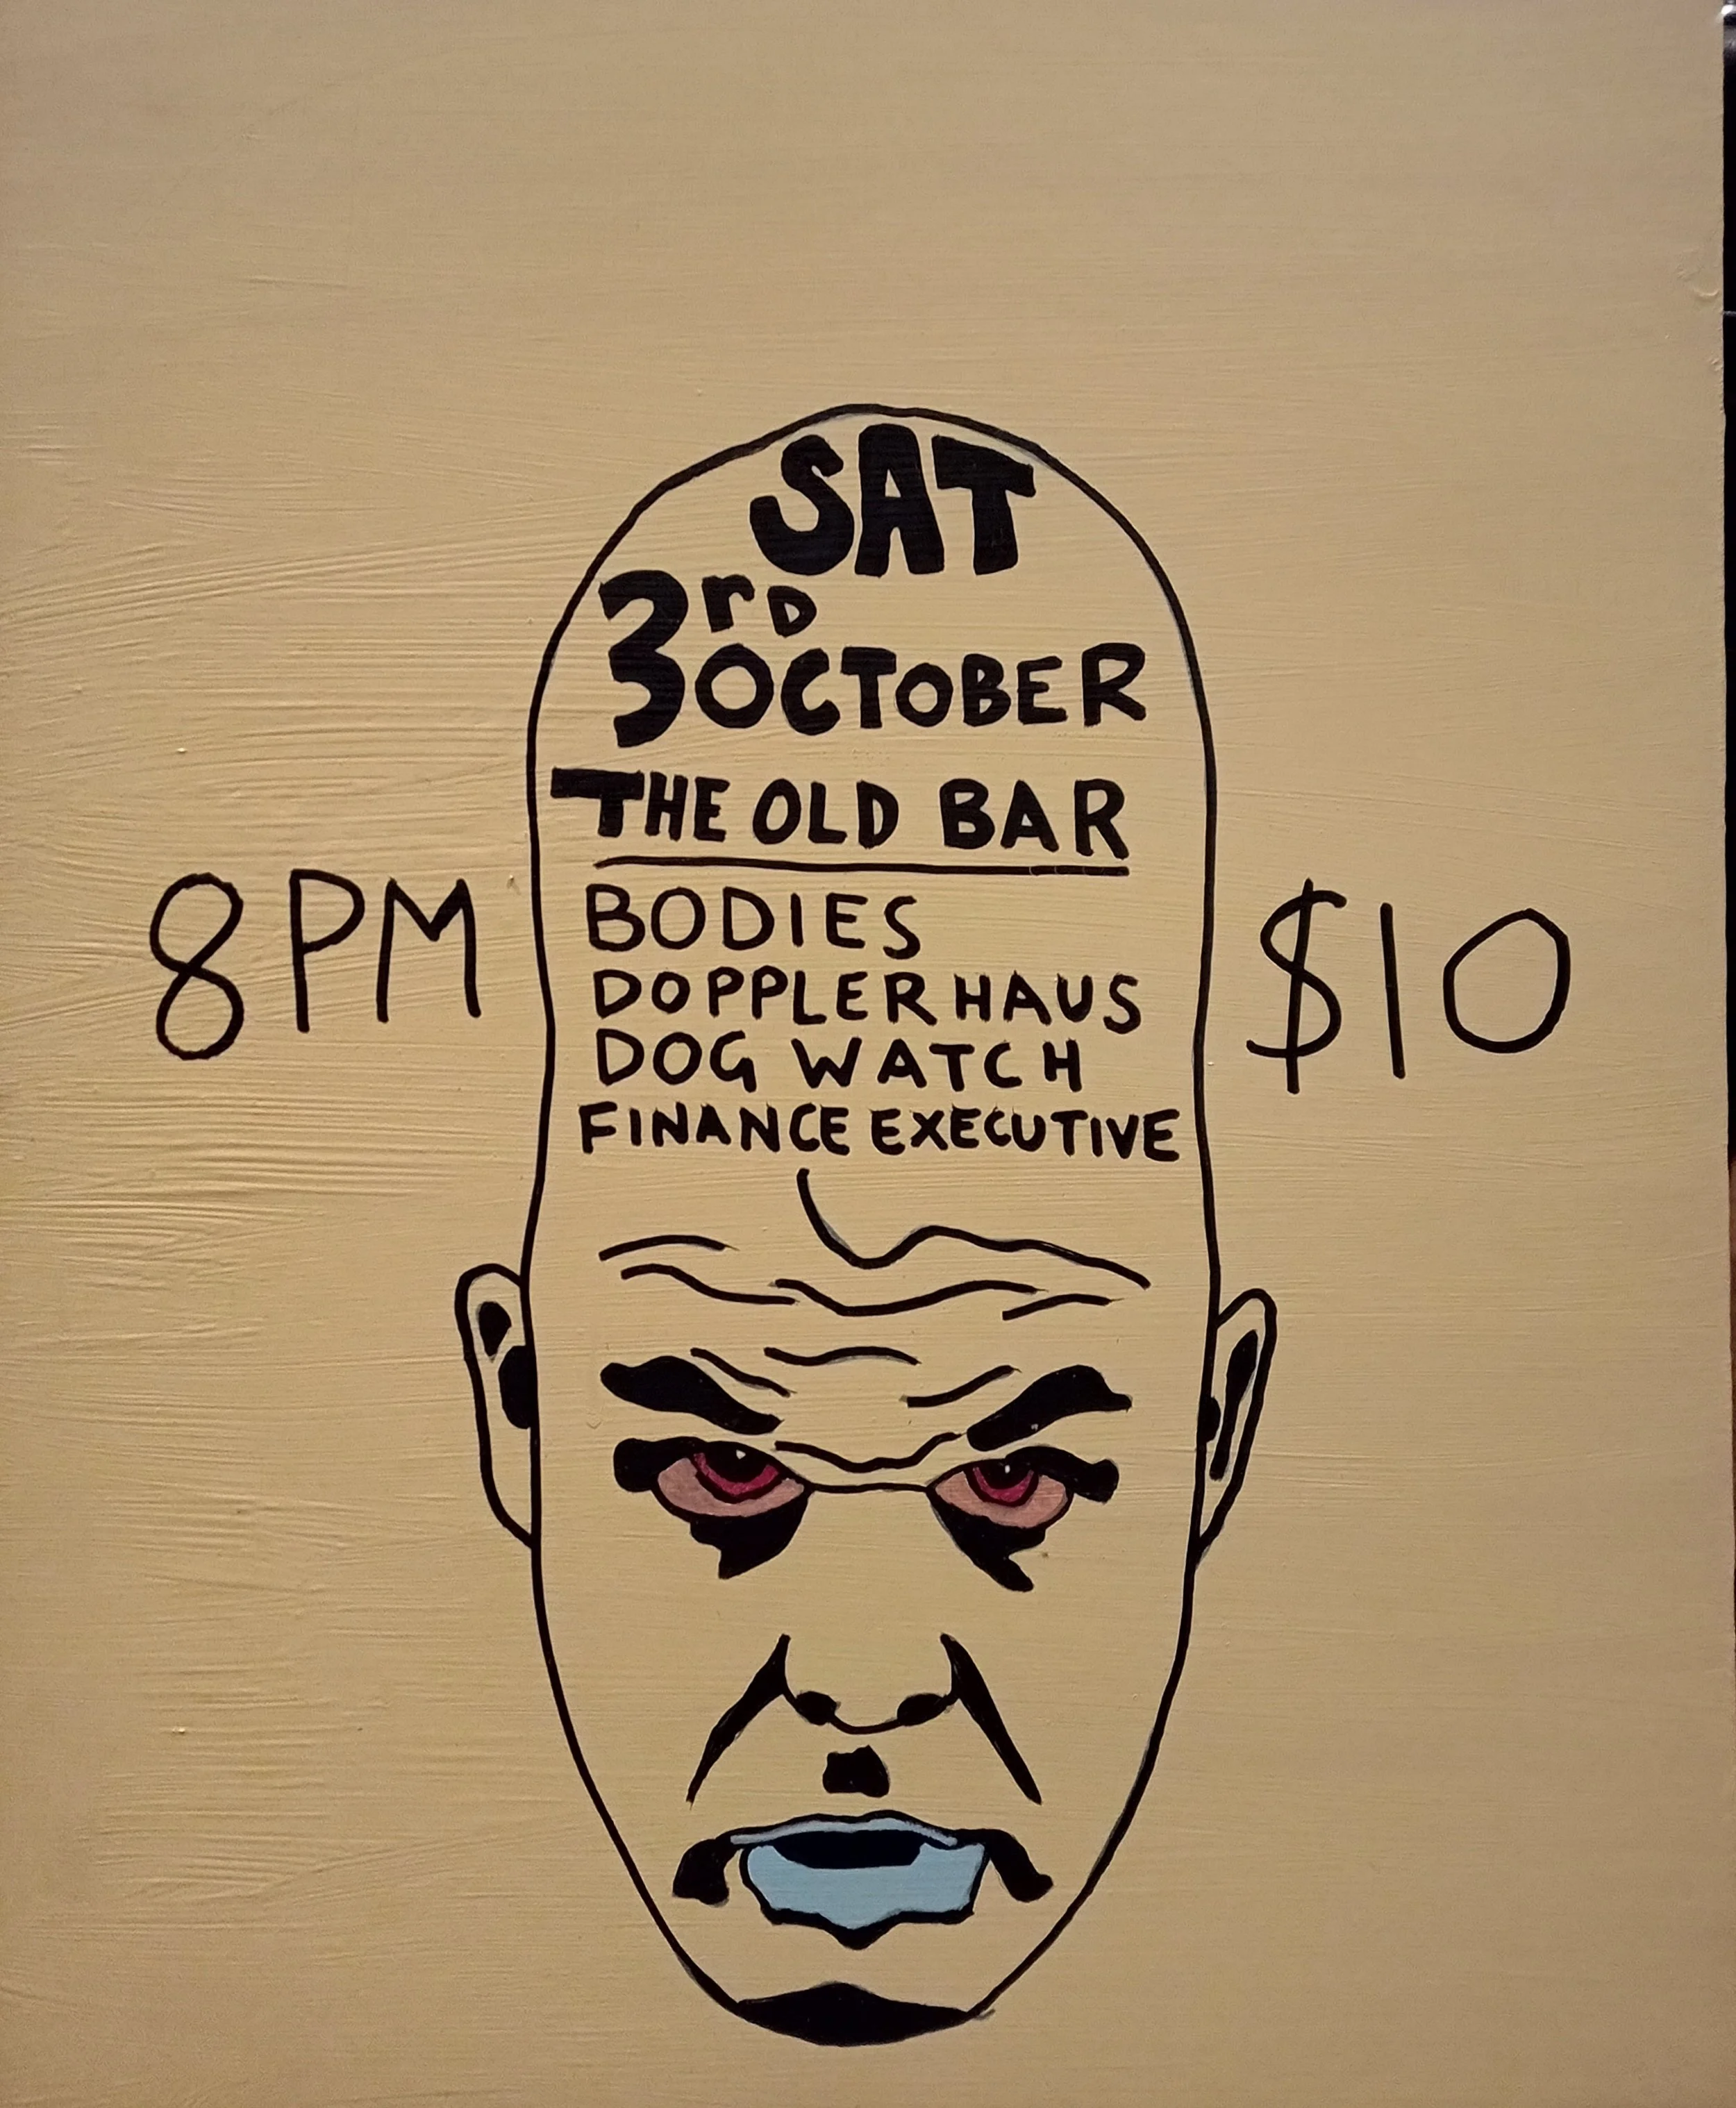 SAT
3rd OCTOBER
THE OLD BAR
8PM
$10
BODIES
DOPPLERHAUS
DOG WATCH
FINANCE EXECUTIVE